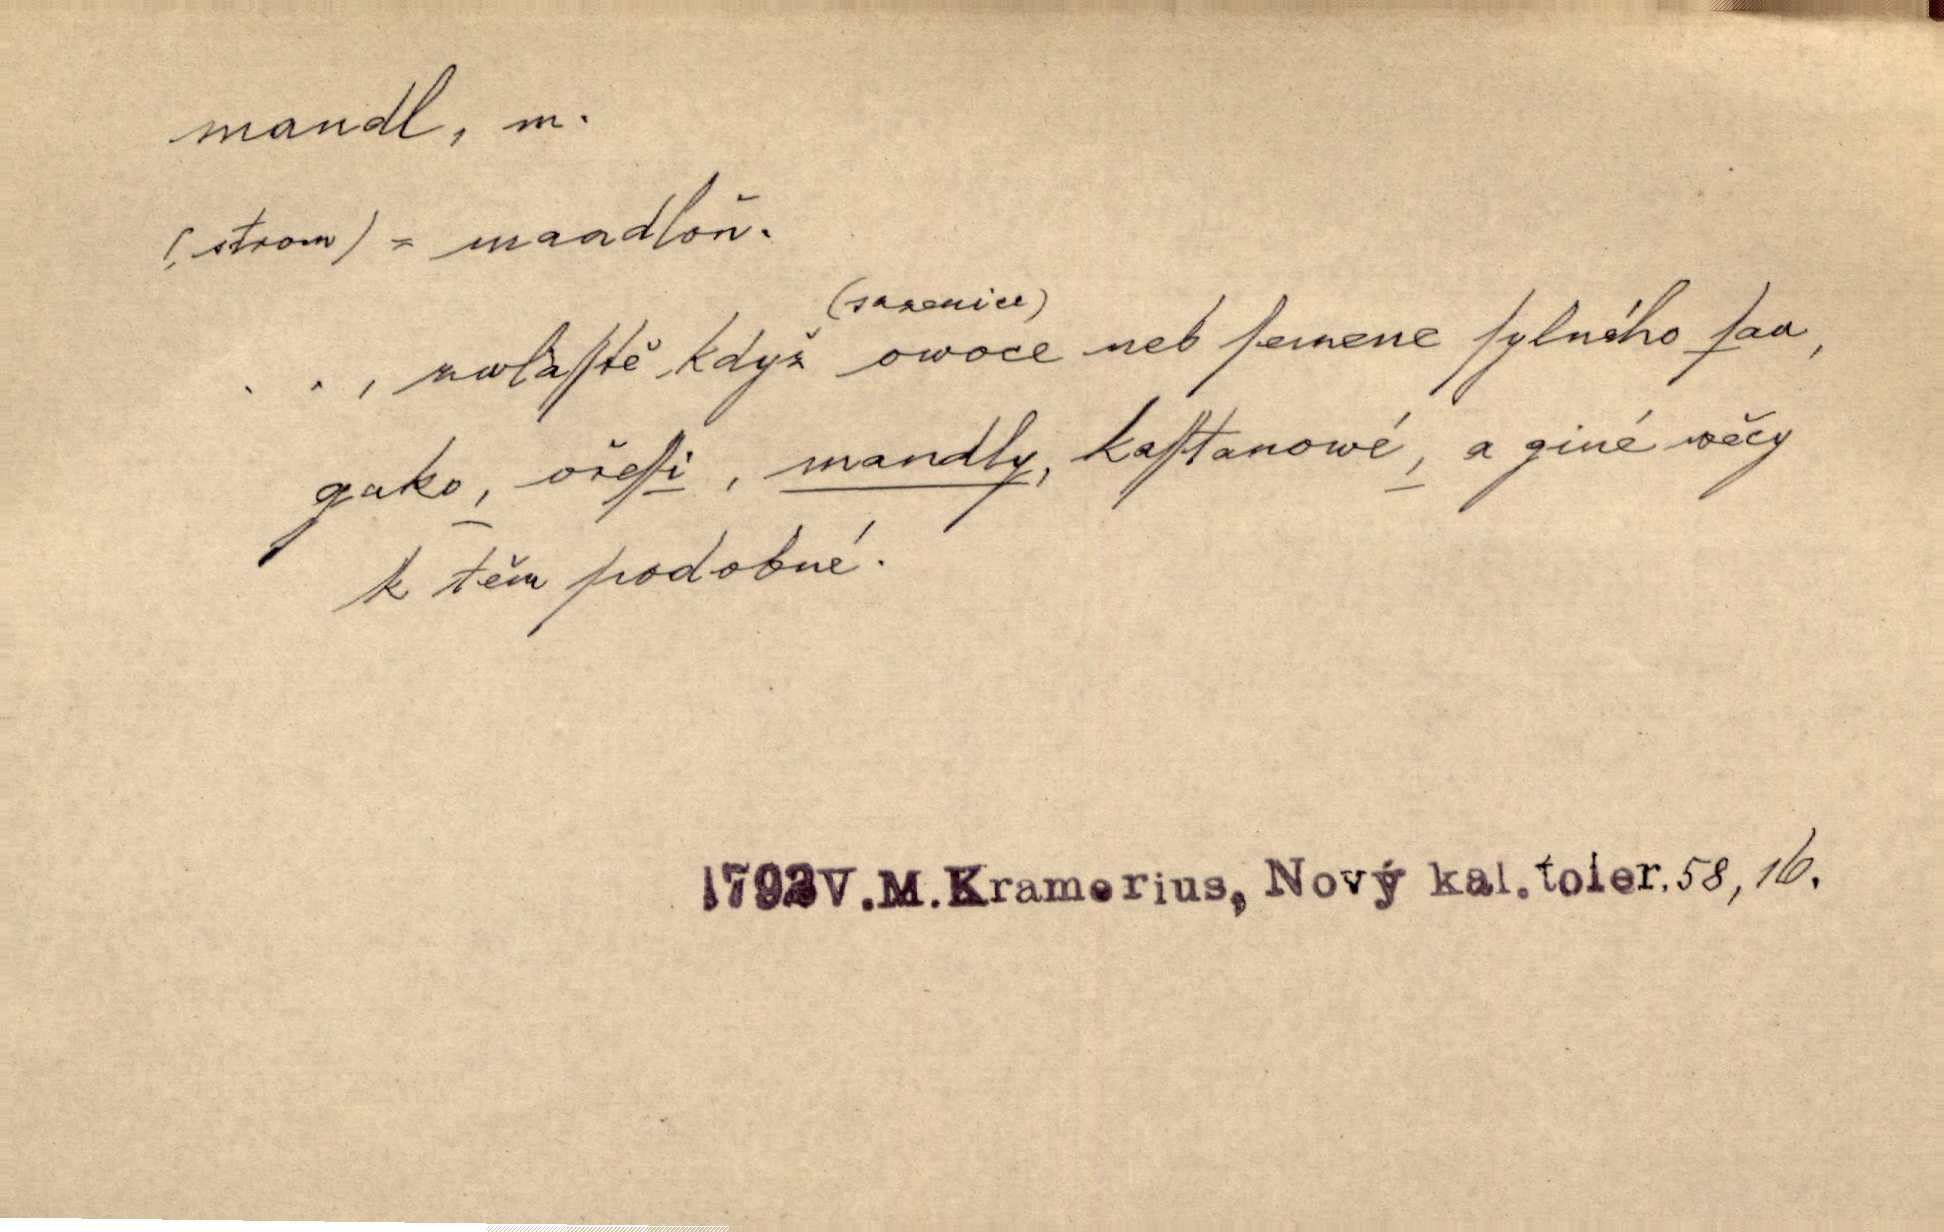 mandl, m.
(strom) = mandloň.
(sazenice)
. . , zwlaſſtě když owoce neb ſemene ſylného ſau,
gako, ořeſſi, mandly, kaſſtanowé, a giné wěcy
k těm podobné.
1792 V.M.Kramerius, Nový kal.toler. 58, 16.